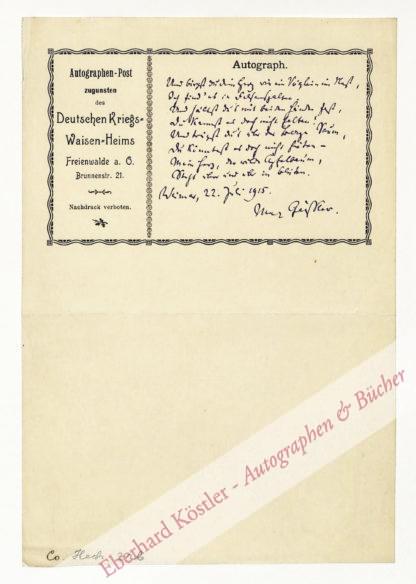 Autographen-Post
zugunsten
des
Deutschen Kriegs-
Waisen-Heims
Freienwalde a. O.
Brunnenstr. 21.
Nachdruck verboten.
Autograph.
Und birgst du dein Herz wie ein Vöglein im Nest,
Und hältst du's mit beiden Händen fest,
Du kannst es doch nicht halten!
Und du
Du könntest es doch nicht hüten –
Mein Herz, der wilde Apfelbaum,
Steht über und über in Blüten.
Weimar, 22. Juli 1915.
Max Geißler.
Co.
Eberhard Köstler - Autographen & Bücher